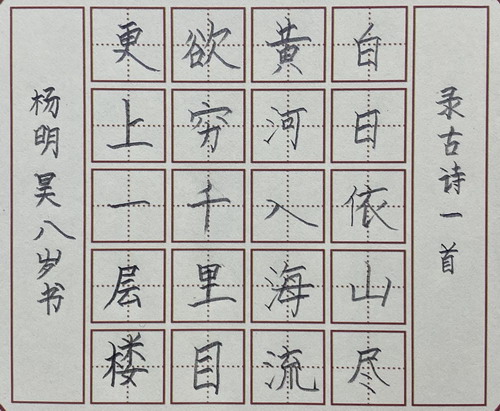 录古诗一首
自日依山尽
黄河入海流
欲穷千里目
更上一层楼
杨明昊八岁书